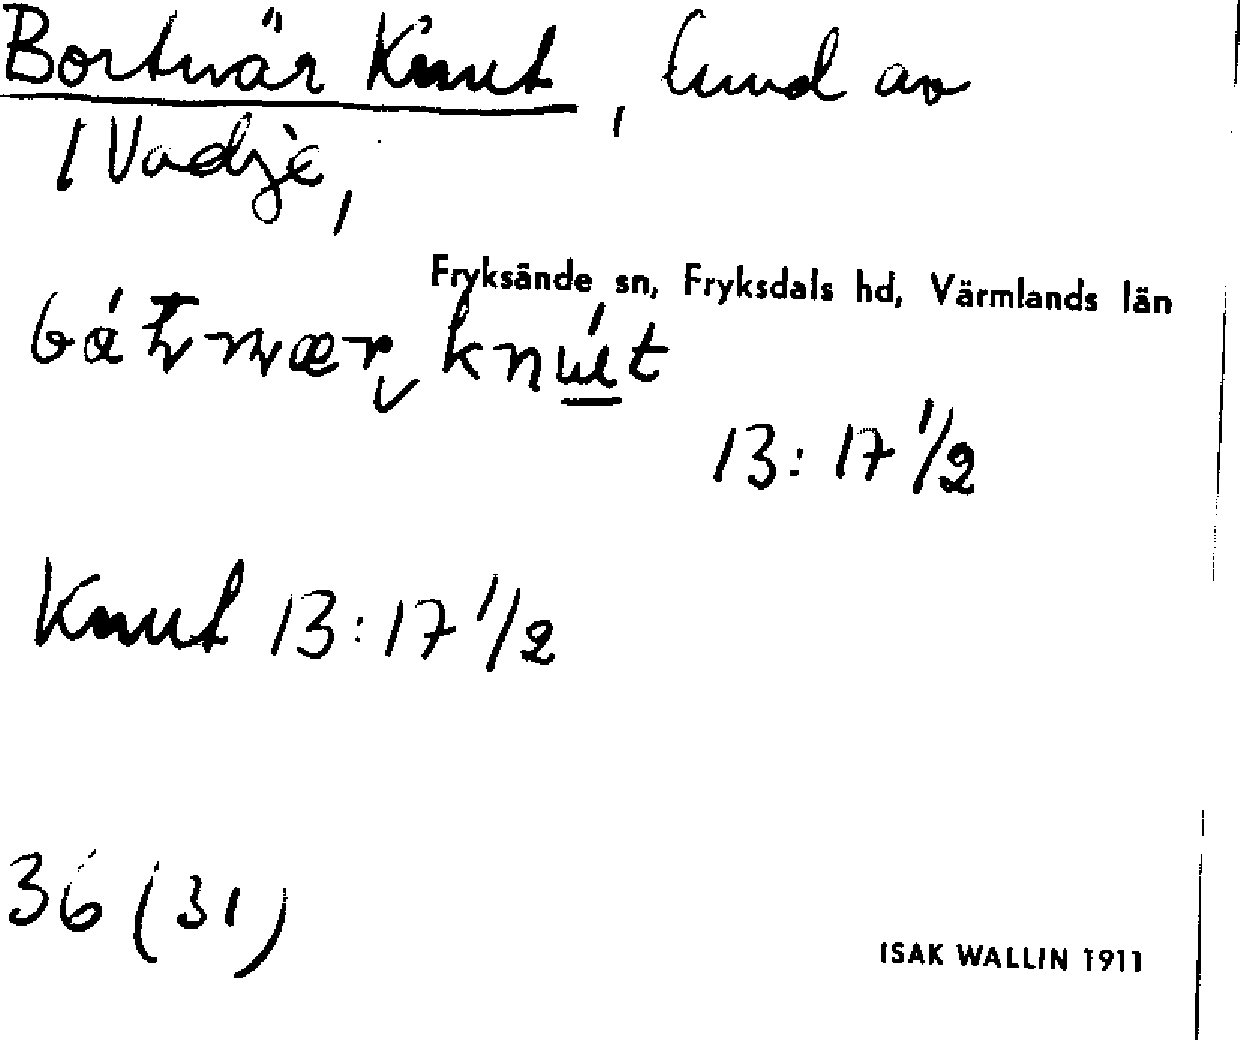 Bortnär Knut, lund av
1 Vadje,
Fryksände sn, Fryksdals hd, Värmlands län
knút
13: 17 1/2
Knut 13:17 1/2
36 (31)
ISAK WALLIN 1911